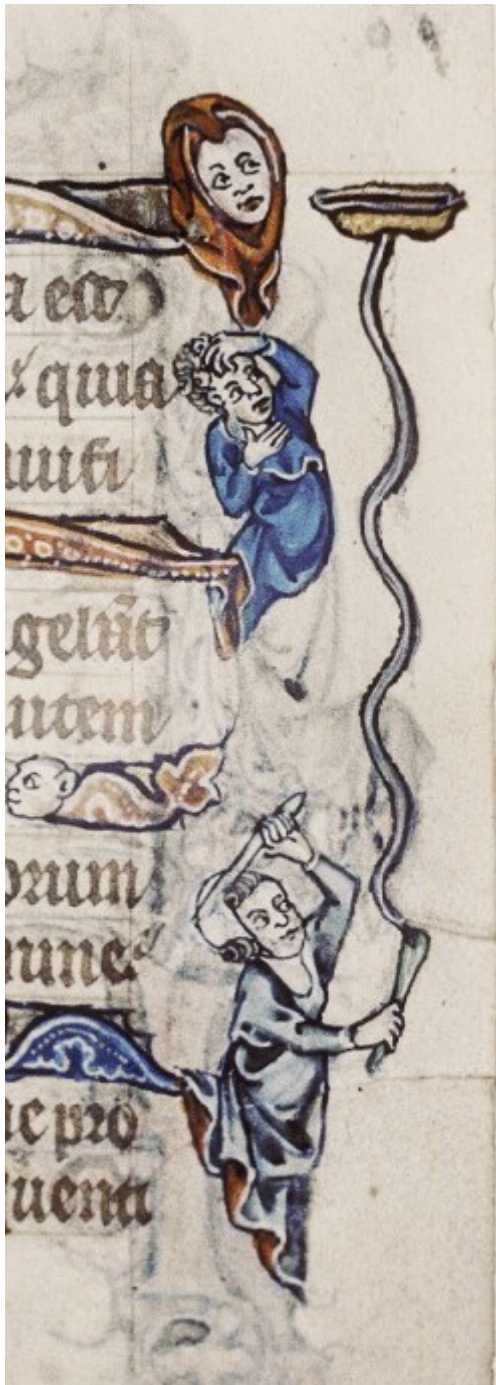 a est
quia
uisti
gelūt
utem
orum
nunc
ic pro
uenti